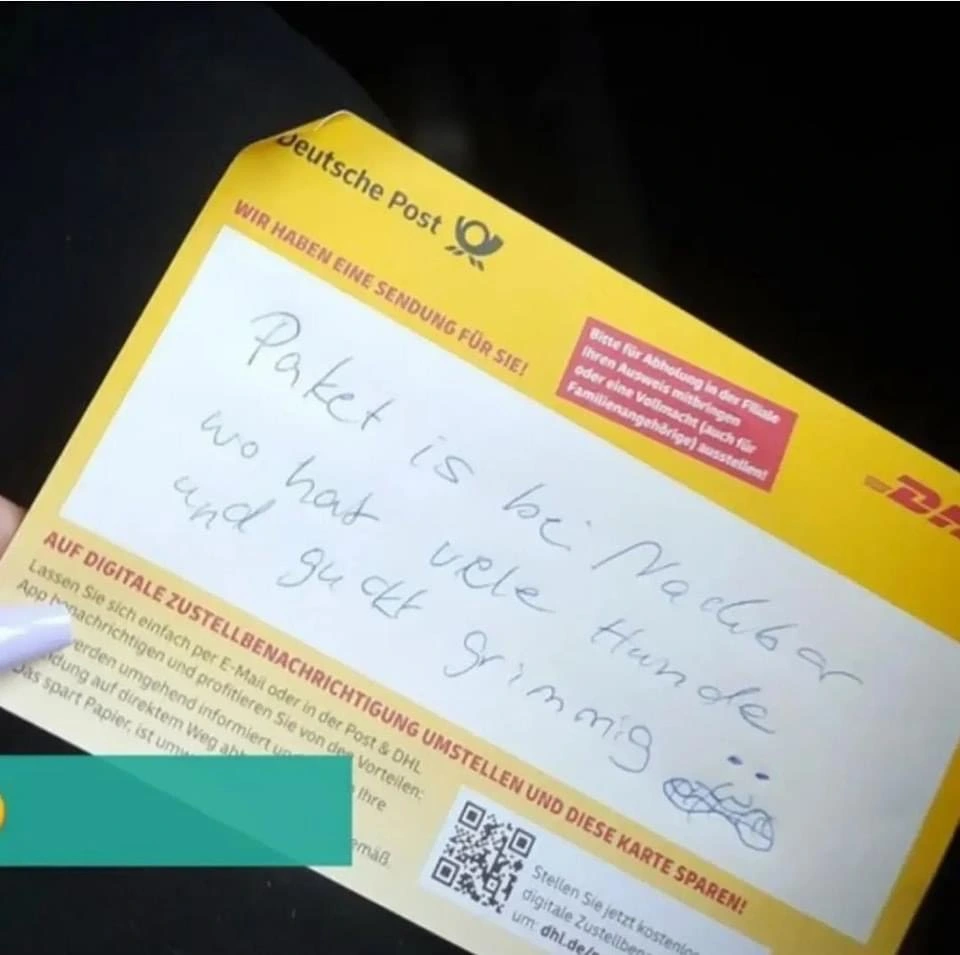 Deutsche Post
WIR HABEN EINE SENDUNG FÜR SIE!
Bitte für Abholung in der Filiale
Ihren Ausweis mitbringen
oder eine Vollmacht (auch für
Familienangehörige) ausstellen!
Paket is bei Nachbar
wo hat viele Hunde
und guckt grimmig
AUF DIGITALE ZUSTELLBENACHRICHTIGUNG UMSTELLEN UND DIESE KARTE SPAREN!
Lassen Sie sich einfach per E-Mail oder in der Post & DHL
App benachrichtigen und profitieren Sie von den Vorteilen:
werden umgehend informiert
Ihre
auf direktem Weg
Das spart Papier, ist
Stellen Sie jetzt kostenlos
digitale
um: dhl.de/